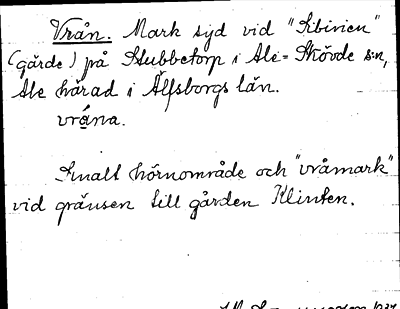 Vrån. Mark syd vid "Sibirien"
(gärde) på Stubbetorp i Ale-Skövde s:n,
Ale härad i Älfsborgs län.
vrána.
Smalt hörnområde och "vråmark"
vid gränsen till gården Klinten.